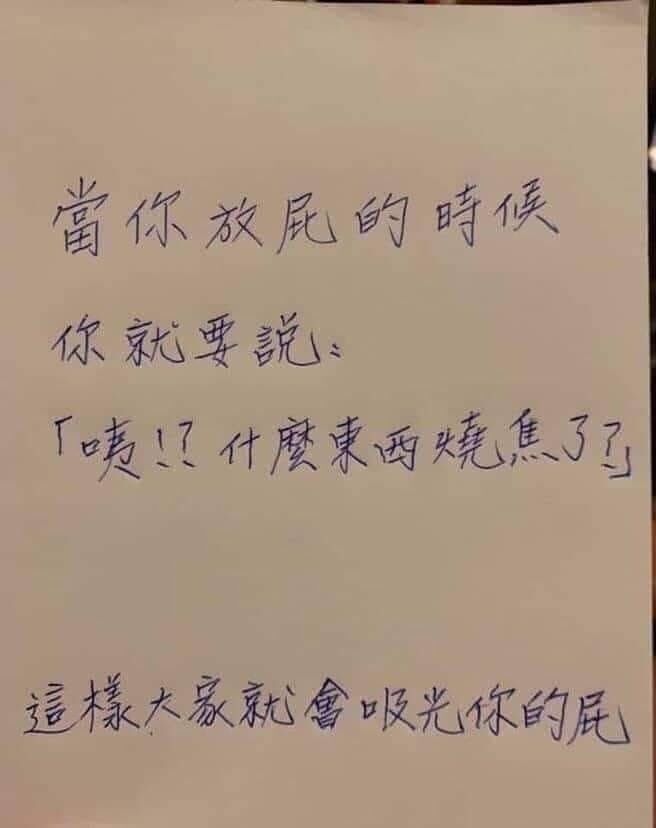 當你放屁的時候
你就要說：
「咦！？什麼東西燒焦了？」
這樣大家就會吸光你的屁